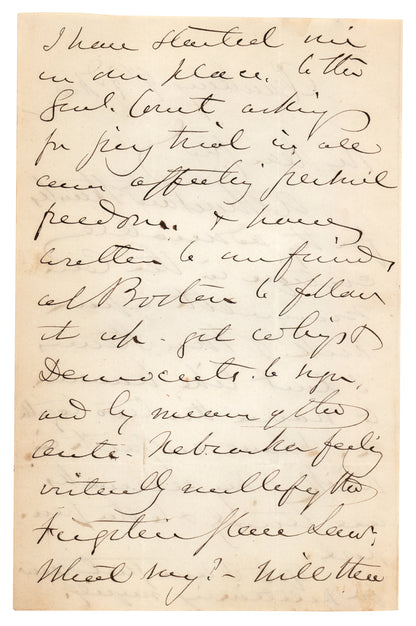 I have started one
in our place. to the
Genl. Court asking
for jury trial in all
cases affecting personal
freedom. & have
written to our friends
at Boston to follow
it up. get whigs &
Democrats to sign,
and by means of the
anti-Nebraska feeling
virtually nullify the
Fugitive Slave Law.
What say? - Will the